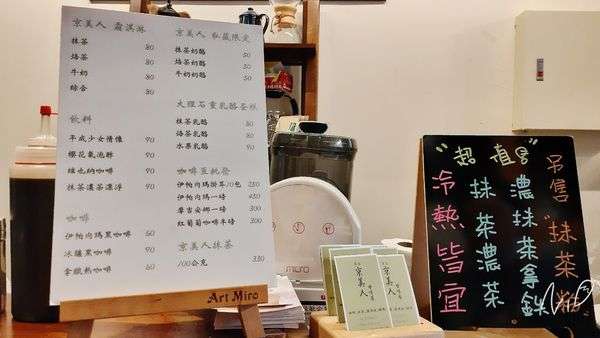 京美人 霜淇淋
抹茶 80
焙茶 80
牛奶 80
綜合 80
飲料
平成少女情懷 90
櫻花氣泡醉 90
維也納咖啡 90
抹茶濃茶漂浮 90
咖啡
伊帕內瑪黑咖啡 60
冰釀黑咖啡 90
拿鐵熱咖啡 60
京美人 私藏限定
抹茶奶酪 50
焙茶奶酪 50
牛奶奶酪 50
大理石重乳酪蛋糕
抹茶乳酪 80
焙茶乳酪 80
水果乳酪 90
咖啡豆批發
伊帕內瑪掛耳10包 250
伊帕內瑪一磅 450
摩吉安娜一磅 500
紅葡萄咖啡半磅 300
京美人抹茶
100公克 330
Art Miro
京美人
京美人
"超值"
冷熱皆宜
抹茶濃茶
濃抹茶拿鉄
"抹茶